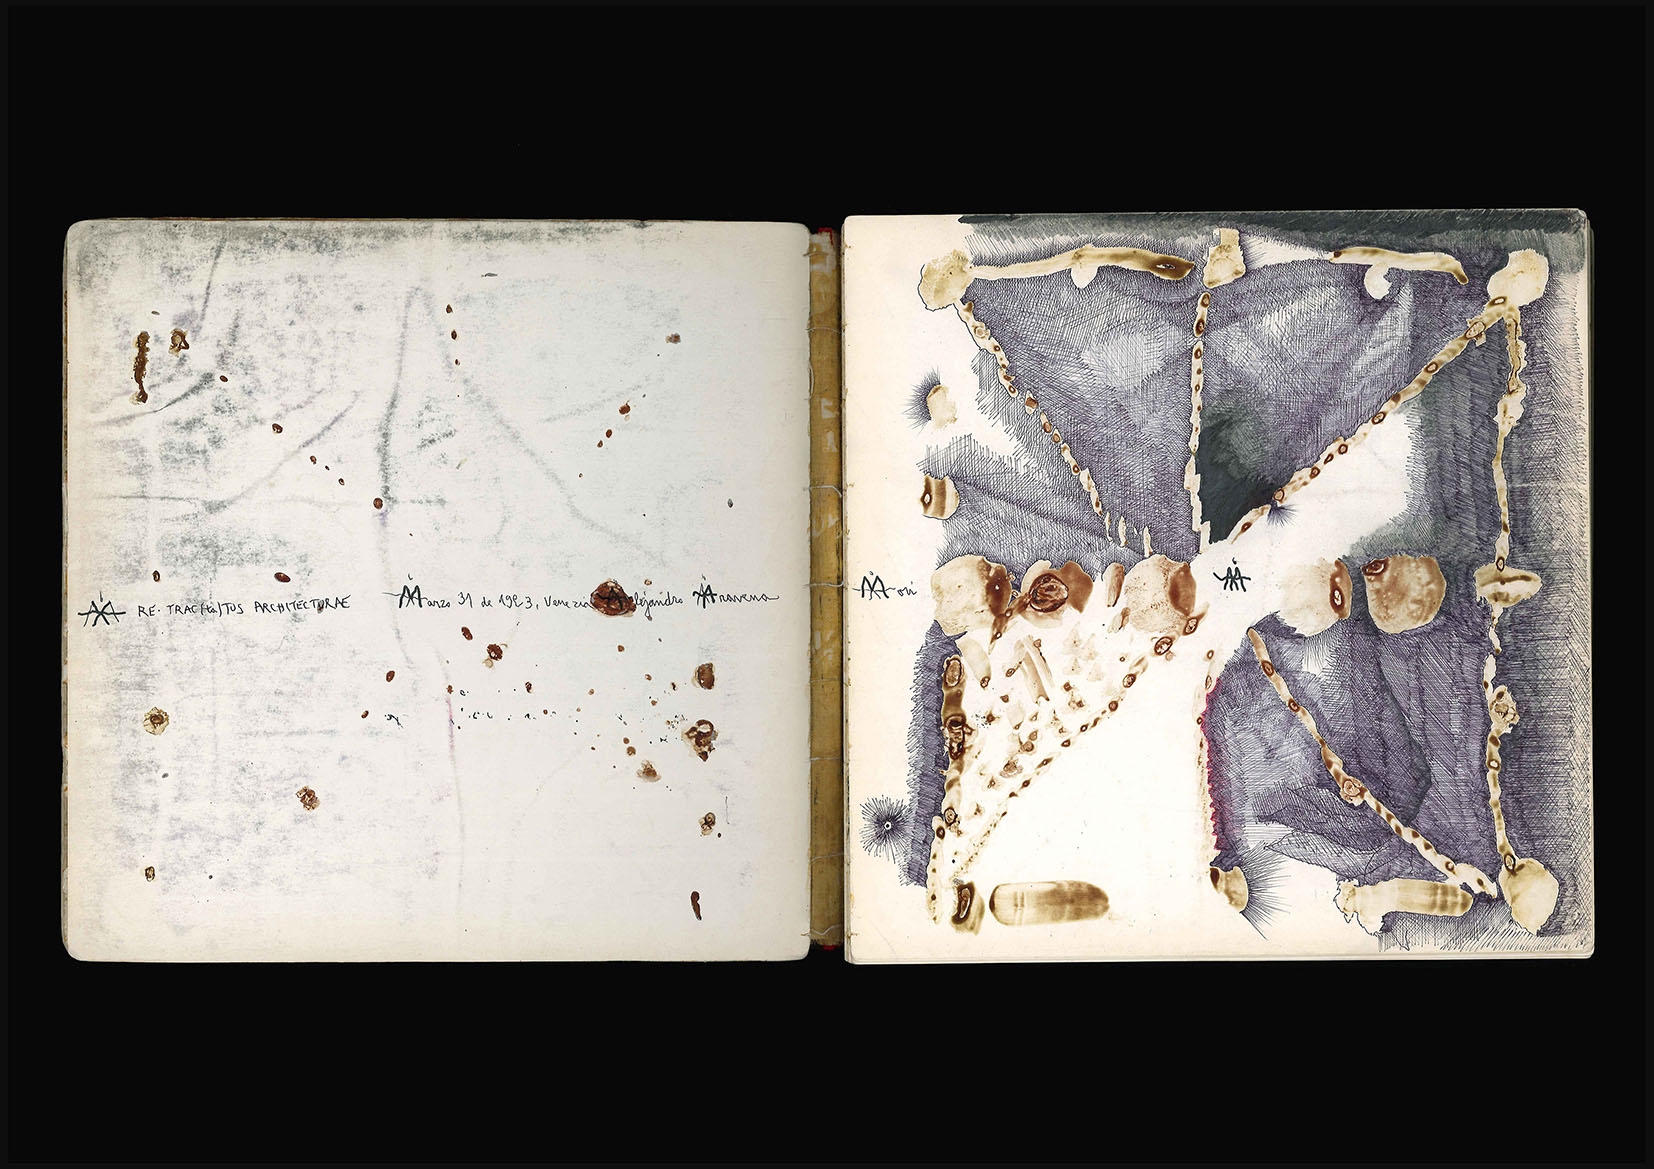 RE·TRAC(ta)TUS ARCHITECTURAE Marzo 31 de 1993, Venezia Alejandro Aravena